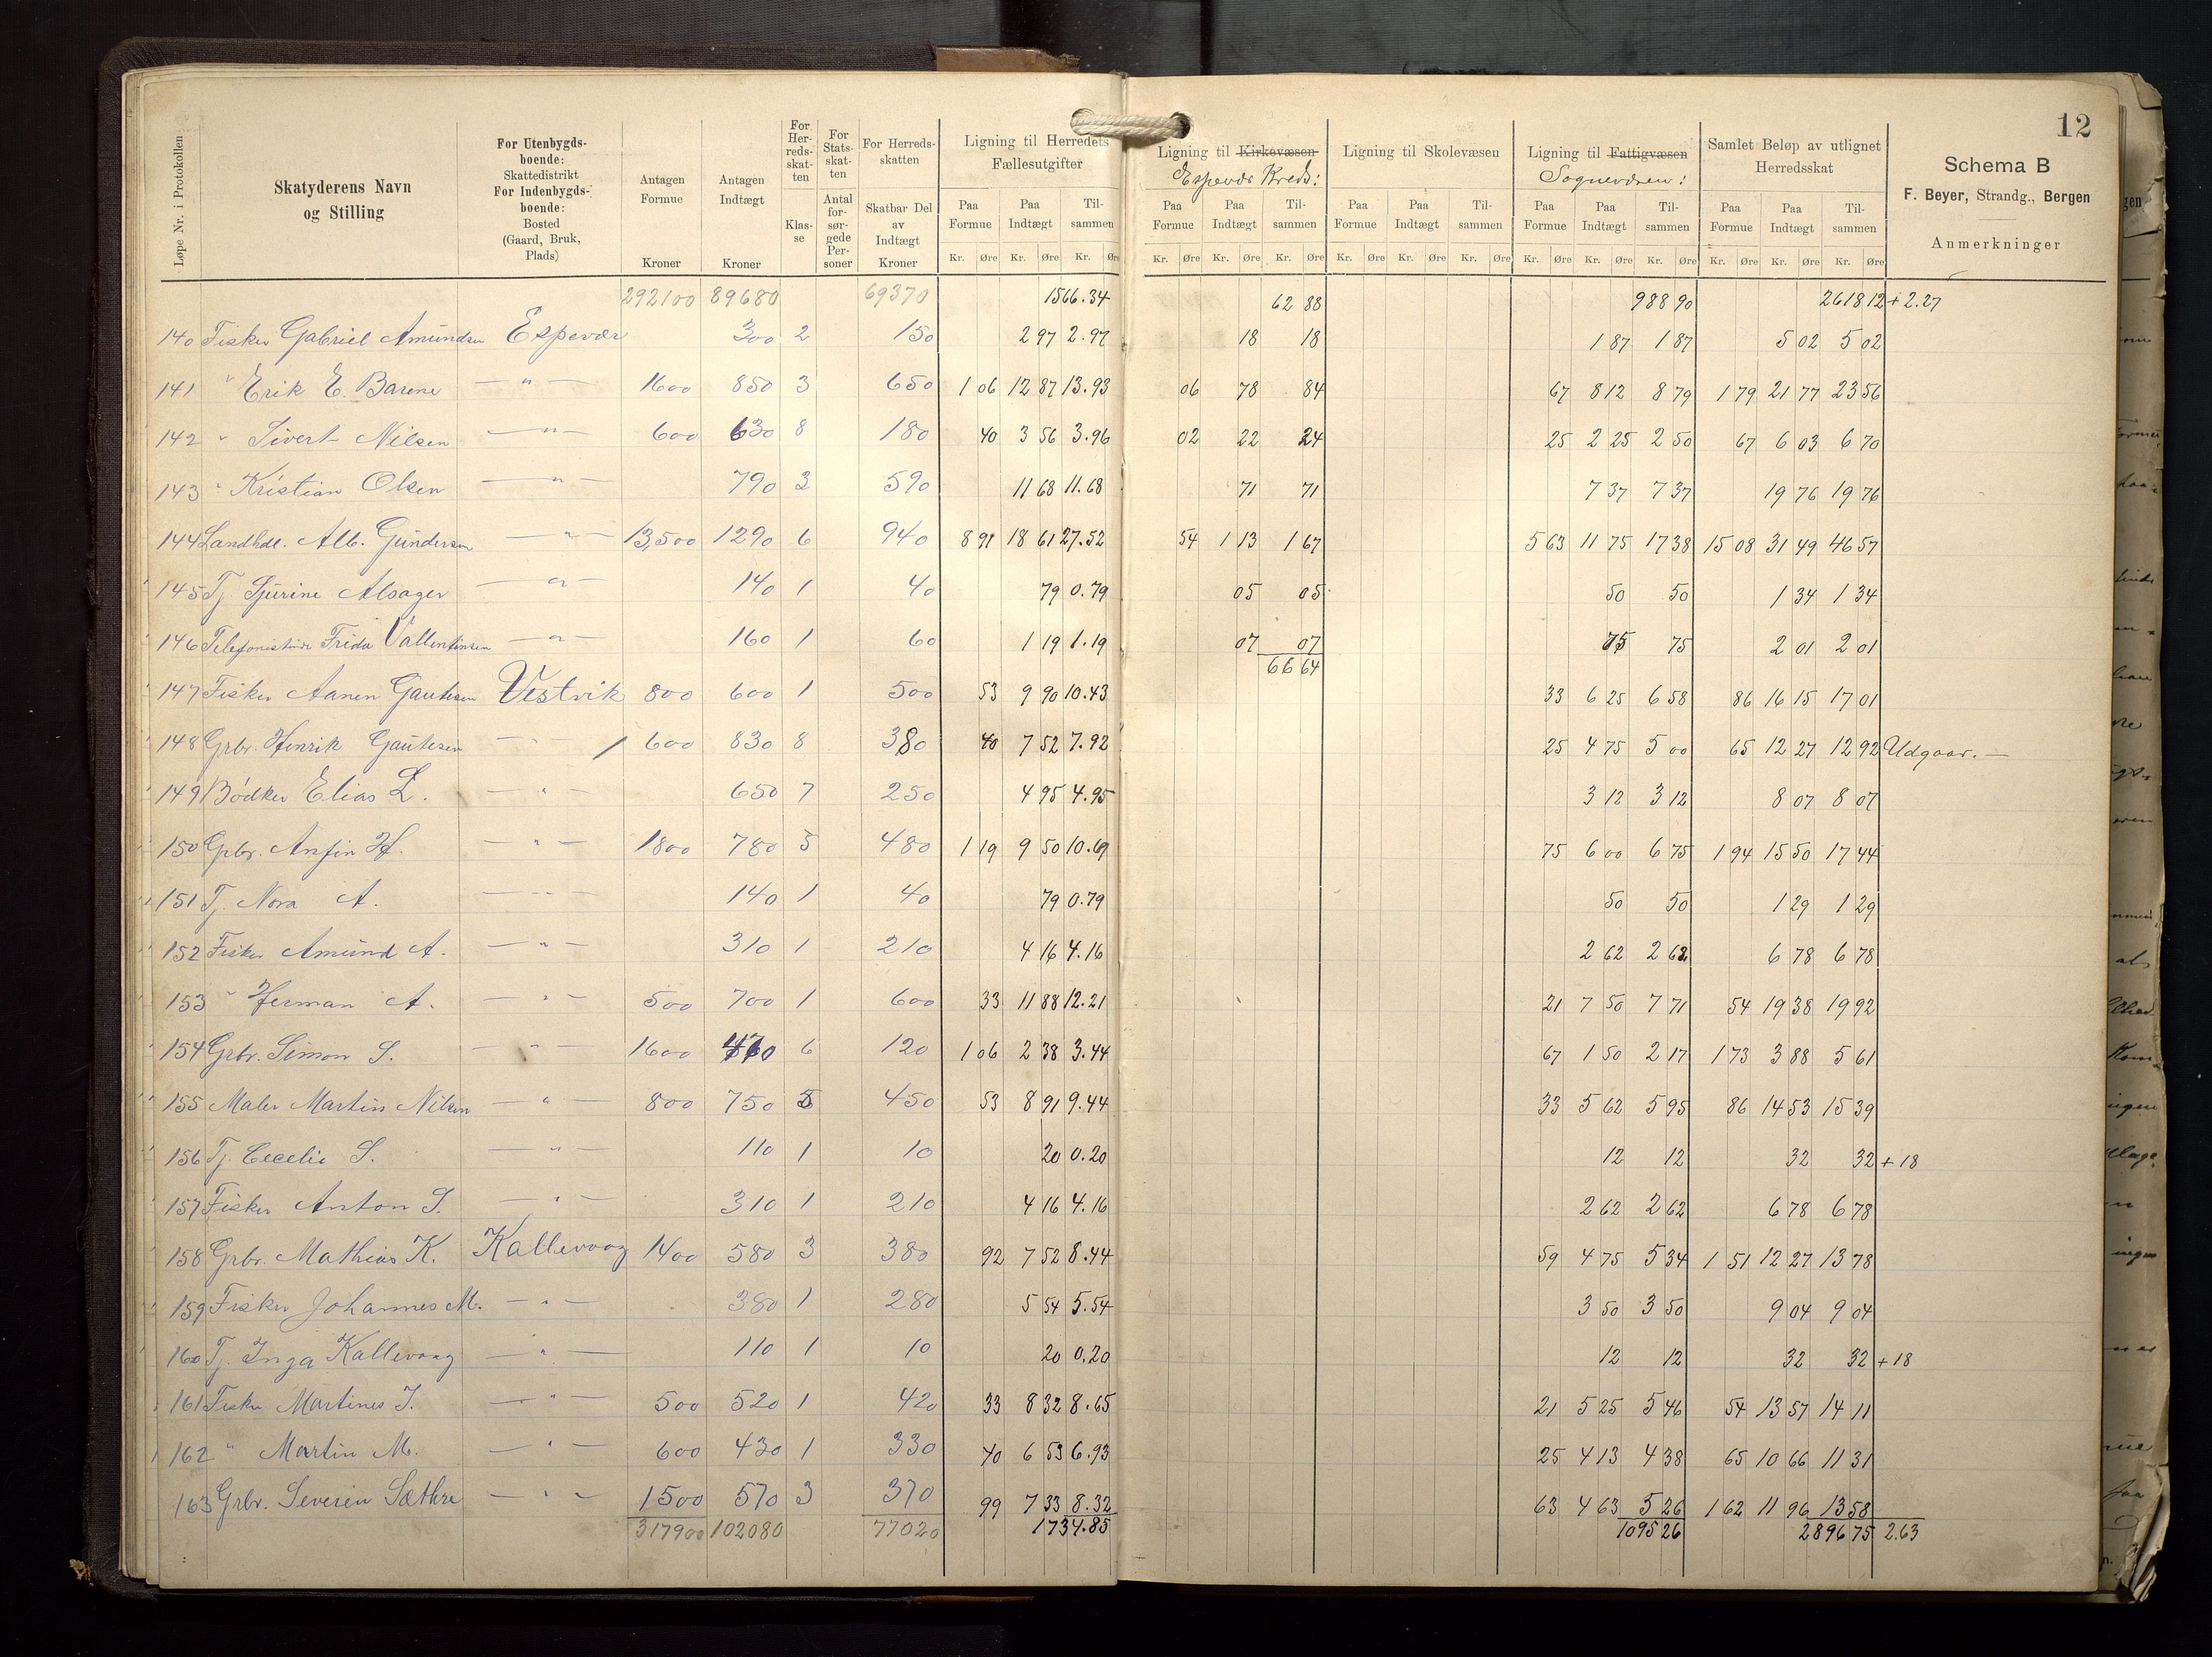 12
Løpe Nr. i Protokollen
Skatyderens Navn og Stilling
For Utenbygdsboende: Skattedistrikt For Indenbygdsboende: Bosted (Gaard, Bruk, Plads)
Antagen Formue Kroner
Antagen Indtægt Kroner
For Herredsskatten Klasse
For Statsskatten Antal forsørgede Personer
For Herredsskatten Skatbar Del av Indtægt Kroner
Ligning til Herredets Fællesutgifter Paa Formue Paa Indtægt Tilsammen Kr. Øre Kr. Øre Kr. Øre
Ligning til Kirkevæsen Espevær Kreds: Paa Formue Paa Indtægt Tilsammen Kr. Øre Kr. Øre Kr. Øre
Ligning til Skolevæsen Paa Formue Paa Indtægt Tilsammen Kr. Øre Kr. Øre Kr. Øre
Ligning til Fattigvæsen Sognevæsen: Paa Formue Paa Indtægt Tilsammen Kr. Øre Kr. Øre Kr. Øre
Samlet Beløp av utlignet Herredsskat Paa Formue Paa Indtægt Tilsammen Kr. Øre Kr. Øre Kr. Øre
Schema B
F. Beyer, Strandg., Bergen
Anmerkninger
292100 89680 69370 1566.34 62 88 988 90 2618 12 + 2.27
140 Fisker Gabriel Amundsen Espevær 300 2 150 2 97 2.97 18 18 1 87 1 87 5 02 5 02
141 " Erik E. Barene — " — 1600 850 3 650 1 06 12 87 13.93 06 78 84 67 8 12 8 79 1 79 21 77 23 56
142 " Sivert Nilsen — " — 600 630 8 180 40 3 56 3.96 02 22 24 25 2 25 2 50 67 6 03 6 70
143 " Kristian Olsen — " — 790 3 590 11 68 11.68 71 71 7 37 7 37 19 76 19 76
144 Landhdl. Alb. Gundersen — " — 13,500 1290 6 940 8 91 18 61 27.52 54 1 13 1 67 5 63 11 75 17 38 15 08 31 49 46 57
145 Tj. Sjurine Alsager — " — 140 1 40 79 0.79 05 05 50 50 1 34 1 34
146 Telefonistinde Frida Vallentinsen — " — 160 1 60 1 19 1.19 07 07 75 75 2 01 2 01
66 64
147 Fisker Aanen Gautesen Vestvik 800 600 1 500 53 9 90 10.43 33 6 25 6 58 86 16 15 17 01
148 Grbr. Henrik Gautesen — " — 600 830 8 380 40 7 52 7.92 25 4 75 5 00 65 12 27 12 92 Udgaar. —
149 Bødker Elias L. — " — 650 7 250 4 95 4.95 3 12 3 12 8 07 8 07
150 Grbr. Anfin H. — " — 1800 780 5 480 1 19 9 50 10.69 75 6 00 6 75 1 94 15 50 17 44
151 Tj. Nora A. — " — 140 1 40 79 0.79 50 50 1 29 1 29
152 Fisker Amund A. — " — 310 1 210 4 16 4.16 2 62 2 62 6 78 6 78
153 " Herman A. — " — 500 700 1 600 33 11 88 12.21 21 7 50 7 71 54 19 38 19 92
154 Grbr. Simon S. — " — 1600 6 120 1 06 2 38 3.44 67 1 50 2 17 1 73 3 88 5 61
155 Maler Martin Nilsen — " — 800 750 5 450 53 8 91 9.44 33 5 62 5 95 86 14 53 15 39
156 Tj. Cecelie S. — " — 110 1 10 20 0.20 12 12 32 32 + 18
157 Fisker Anton S. — " — 310 1 210 4 16 4.16 2 62 2 62 6 78 6 78
158 Grbr. Mathias K. Kallevaag 1400 580 3 380 92 7 52 8.44 59 4 75 5 34 1 51 12 27 13 78
159 Fisker Johannes M. — " — 380 1 280 5 54 5.54 3 50 3 50 9 04 9 04
160 Tj. Inga Kallevaag — " — 110 1 10 20 0.20 12 12 32 32 + 18
161 Fisker Martines J. — " — 500 520 1 420 33 8 32 8.65 21 5 25 5 46 54 13 57 14 11
162 " Martin M. — " — 600 430 1 330 40 6 53 6.93 25 4 13 4 38 65 10 66 11 31
163 Grbr. Severin Sæthre — " — 1500 570 3 370 99 7 33 8.32 63 4 63 5 26 1 62 11 96 13 58
317900 102080 77020 1734.85 1095 26 2896 75 2.63